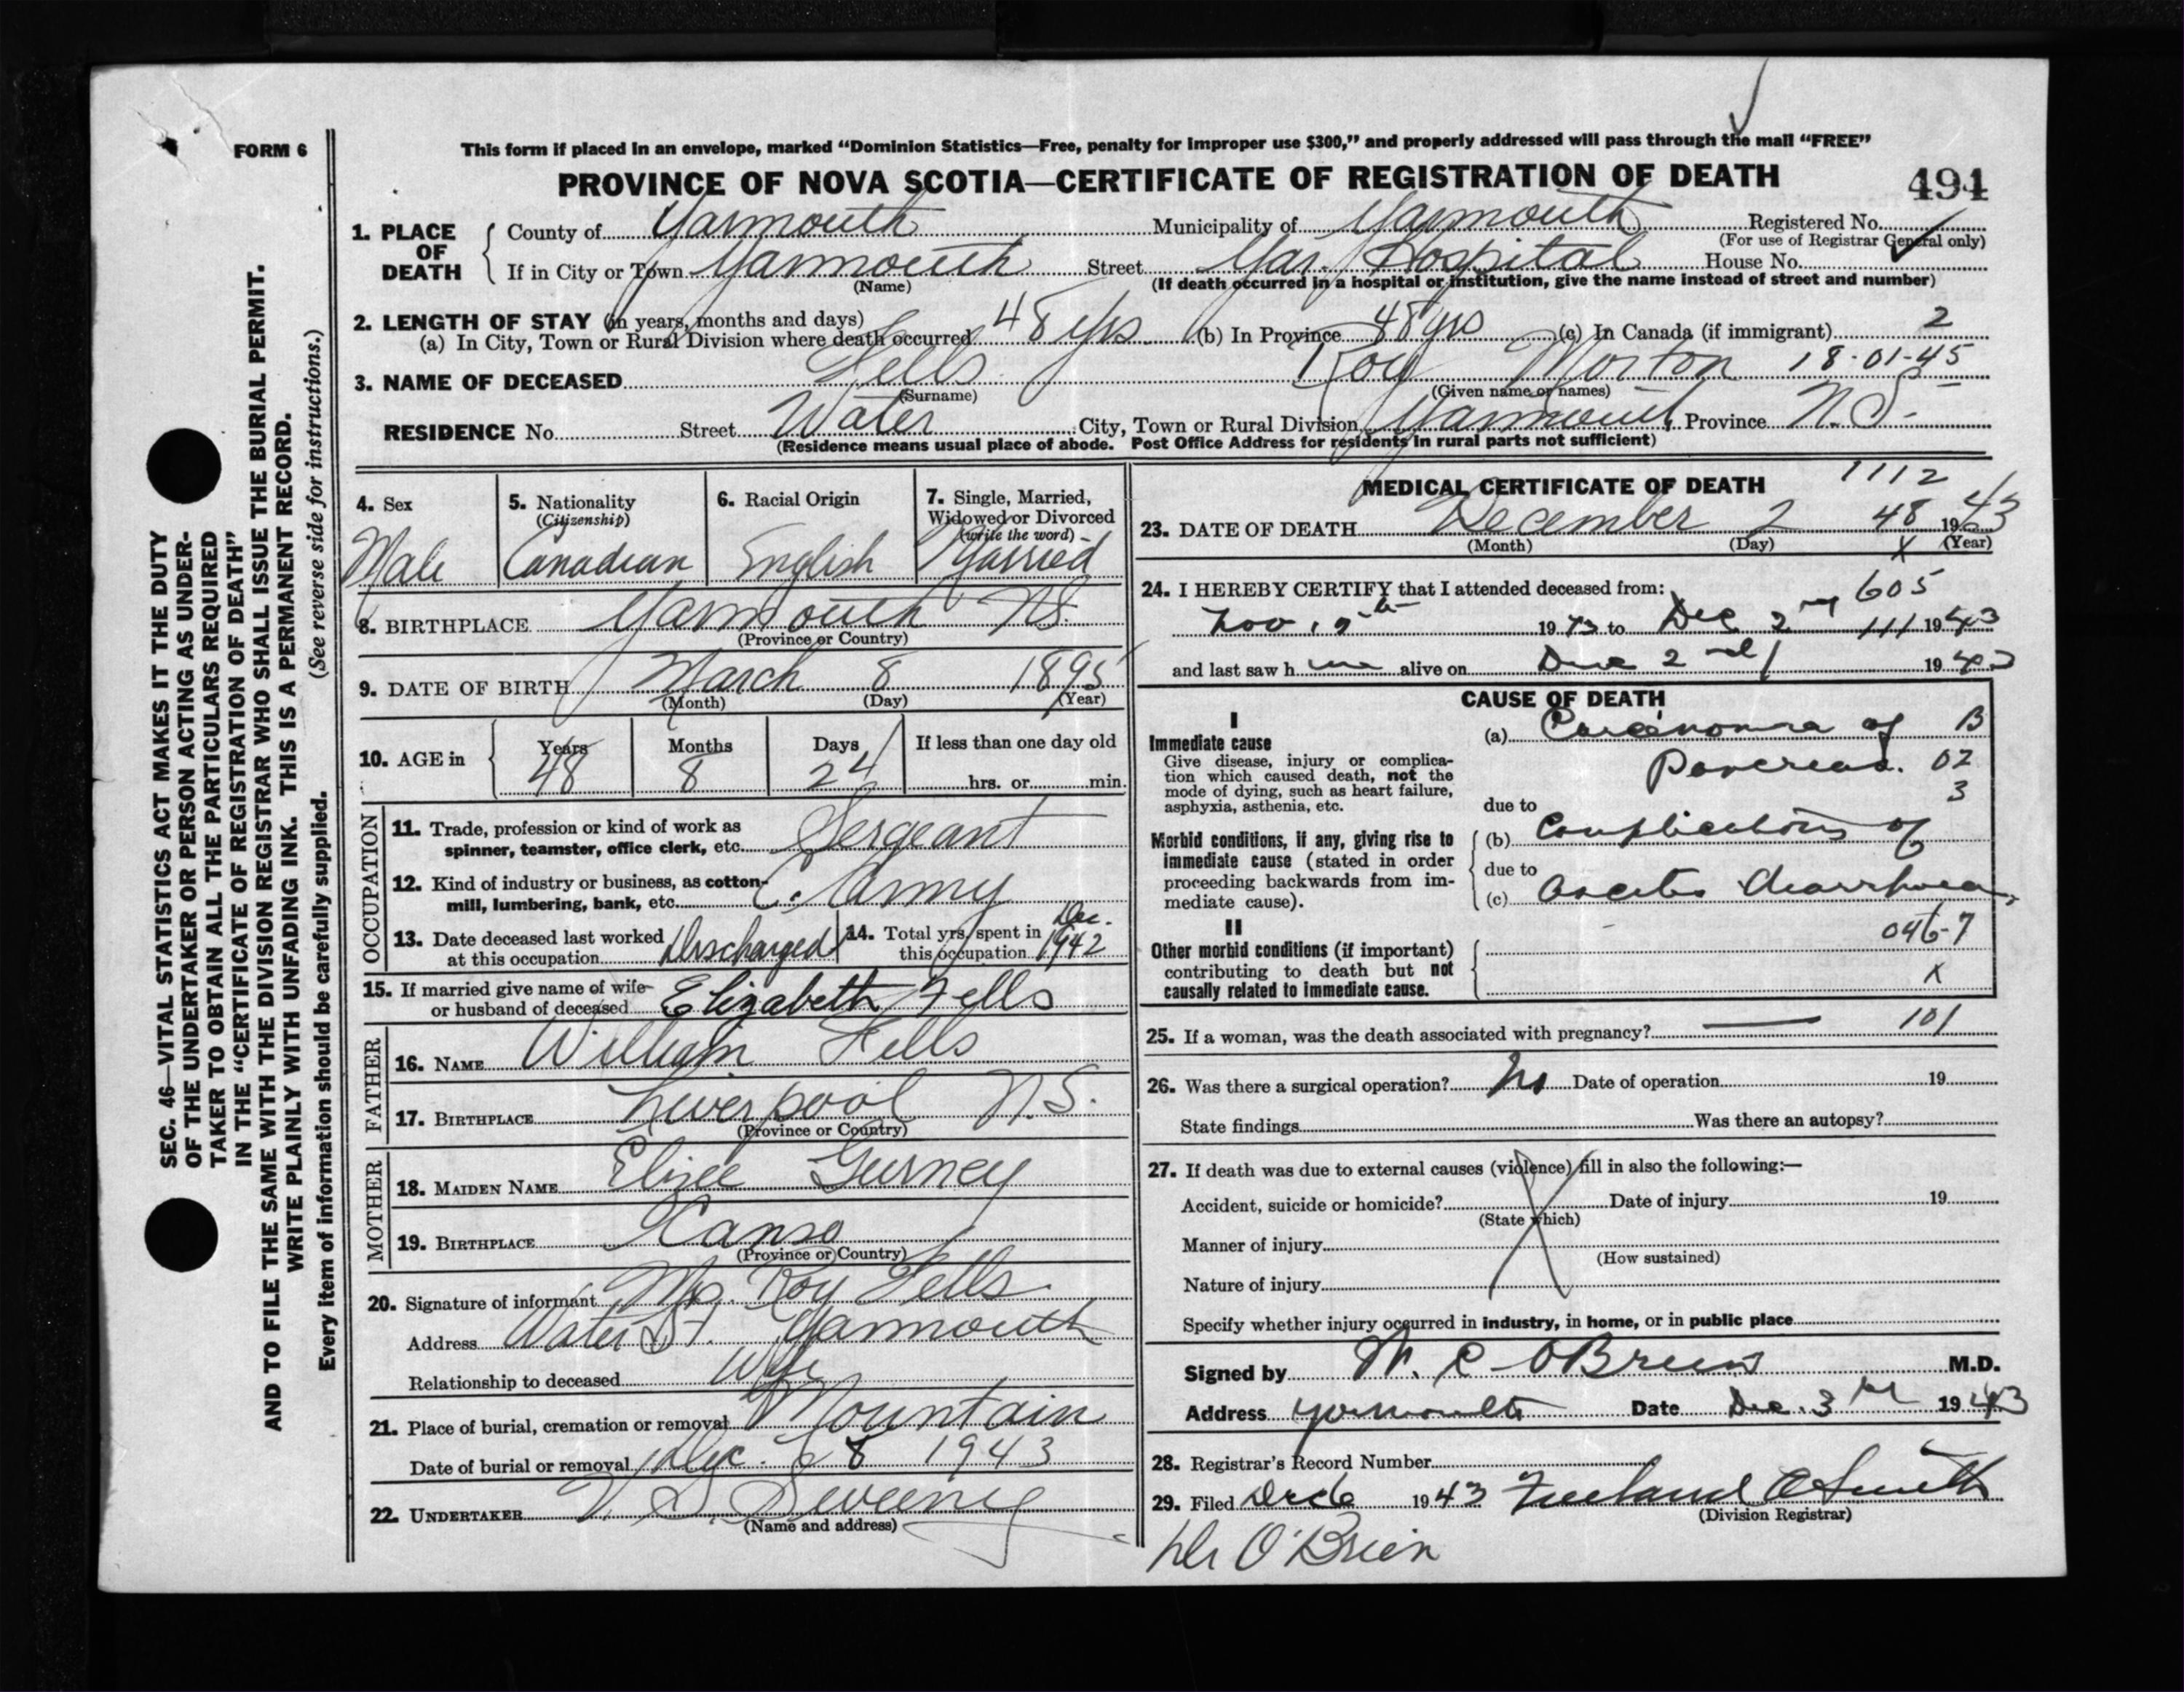 FORM 6
This form if placed in an envelope, marked “Dominion Statistics—Free, penalty for improper use $300,” and properly addressed will pass through the mail “FREE”
PROVINCE OF NOVA SCOTIA—CERTIFICATE OF REGISTRATION OF DEATH
494
1. PLACE OF DEATH
County of Yarmouth Municipality of Yarmouth Registered No.
(For use of Registrar General only)
If in City or Town Yarmouth Street Yar. Hospital House No.
(Name) (If death occurred in a hospital or institution, give the name instead of street and number)
2. LENGTH OF STAY (in years, months and days)
(a) In City, Town or Rural Division where death occurred 48 yrs (b) In Province 48 yrs (c) In Canada (if immigrant) 2
3. NAME OF DECEASED Fells Roy Morton 18-01-45
(Surname) (Given name or names)
RESIDENCE No. Street Water City, Town or Rural Division Yarmouth Province N.S.
(Residence means usual place of abode. Post Office Address for residents in rural parts not sufficient)
4. Sex
Male
5. Nationality
(Citizenship)
Canadian
6. Racial Origin
English
7. Single, Married,
Widowed or Divorced
(write the word)
Married
8. BIRTHPLACE Yarmouth N.S.
(Province or Country)
9. DATE OF BIRTH March 8 1895
(Month) (Day) (Year)
10. AGE in
Years Months Days If less than one day old
48 8 24 hrs. or min.
OCCUPATION
11. Trade, profession or kind of work as
spinner, teamster, office clerk, etc. Sergeant
12. Kind of industry or business, as cotton-
mill, lumbering, bank, etc. C. Army
13. Date deceased last worked
at this occupation Discharged
14. Total yrs. spent in
this occupation Dec. 1942
15. If married give name of wife
or husband of deceased Elizabeth Fells
FATHER
16. NAME William Fells
17. BIRTHPLACE Liverpool N.S.
(Province or Country)
MOTHER
18. MAIDEN NAME Gurney
19. BIRTHPLACE Canso
(Province or Country)
20. Signature of informant Mrs. Roy Fells
Address Water St. Yarmouth
Relationship to deceased wife
21. Place of burial, cremation or removal Mountain
Date of burial or removal Dec. 8 1943
22. UNDERTAKER V. S. Sweeney
(Name and address)
MEDICAL CERTIFICATE OF DEATH
1112
23. DATE OF DEATH December 2 48 1943
(Month) (Day) X (Year)
24. I HEREBY CERTIFY that I attended deceased from: 605
Nov. 1943 to Dec 2nd 111 1943
and last saw h alive on Dec 2nd 1943
CAUSE OF DEATH
I
Immediate cause
Give disease, injury or complica-
tion which caused death, not the
mode of dying, such as heart failure,
asphyxia, asthenia, etc.
(a) Carcinoma of B
Pancreas. 02
3
due to
Morbid conditions, if any, giving rise to
immediate cause (stated in order
proceeding backwards from im-
mediate cause).
(b) Complications of
due to
(c) Ascites diarrhoea
II
Other morbid conditions (if important)
contributing to death but not
causally related to immediate cause.
046-7
X
25. If a woman, was the death associated with pregnancy? — 101
26. Was there a surgical operation? No Date of operation 19
State findings Was there an autopsy?
27. If death was due to external causes (violence) fill in also the following:—
Accident, suicide or homicide? Date of injury 19
(State which)
Manner of injury
(How sustained)
Nature of injury
Specify whether injury occurred in industry, in home, or in public place
Signed by W. C. O'Brien M.D.
Address Yarmouth Date Dec. 3rd 1943
28. Registrar's Record Number
29. Filed Dec 6 1943 Freeland Smith
(Division Registrar)
Dr O'Brien
SEC. 46—VITAL STATISTICS ACT MAKES IT THE DUTY
OF THE UNDERTAKER OR PERSON ACTING AS UNDER-
TAKER TO OBTAIN ALL THE PARTICULARS REQUIRED
IN THE “CERTIFICATE OF REGISTRATION OF DEATH”
AND TO FILE THE SAME WITH THE DIVISION REGISTRAR WHO SHALL ISSUE THE BURIAL PERMIT.
WRITE PLAINLY WITH UNFADING INK. THIS IS A PERMANENT RECORD.
Every item of information should be carefully supplied. (See reverse side for instructions.)